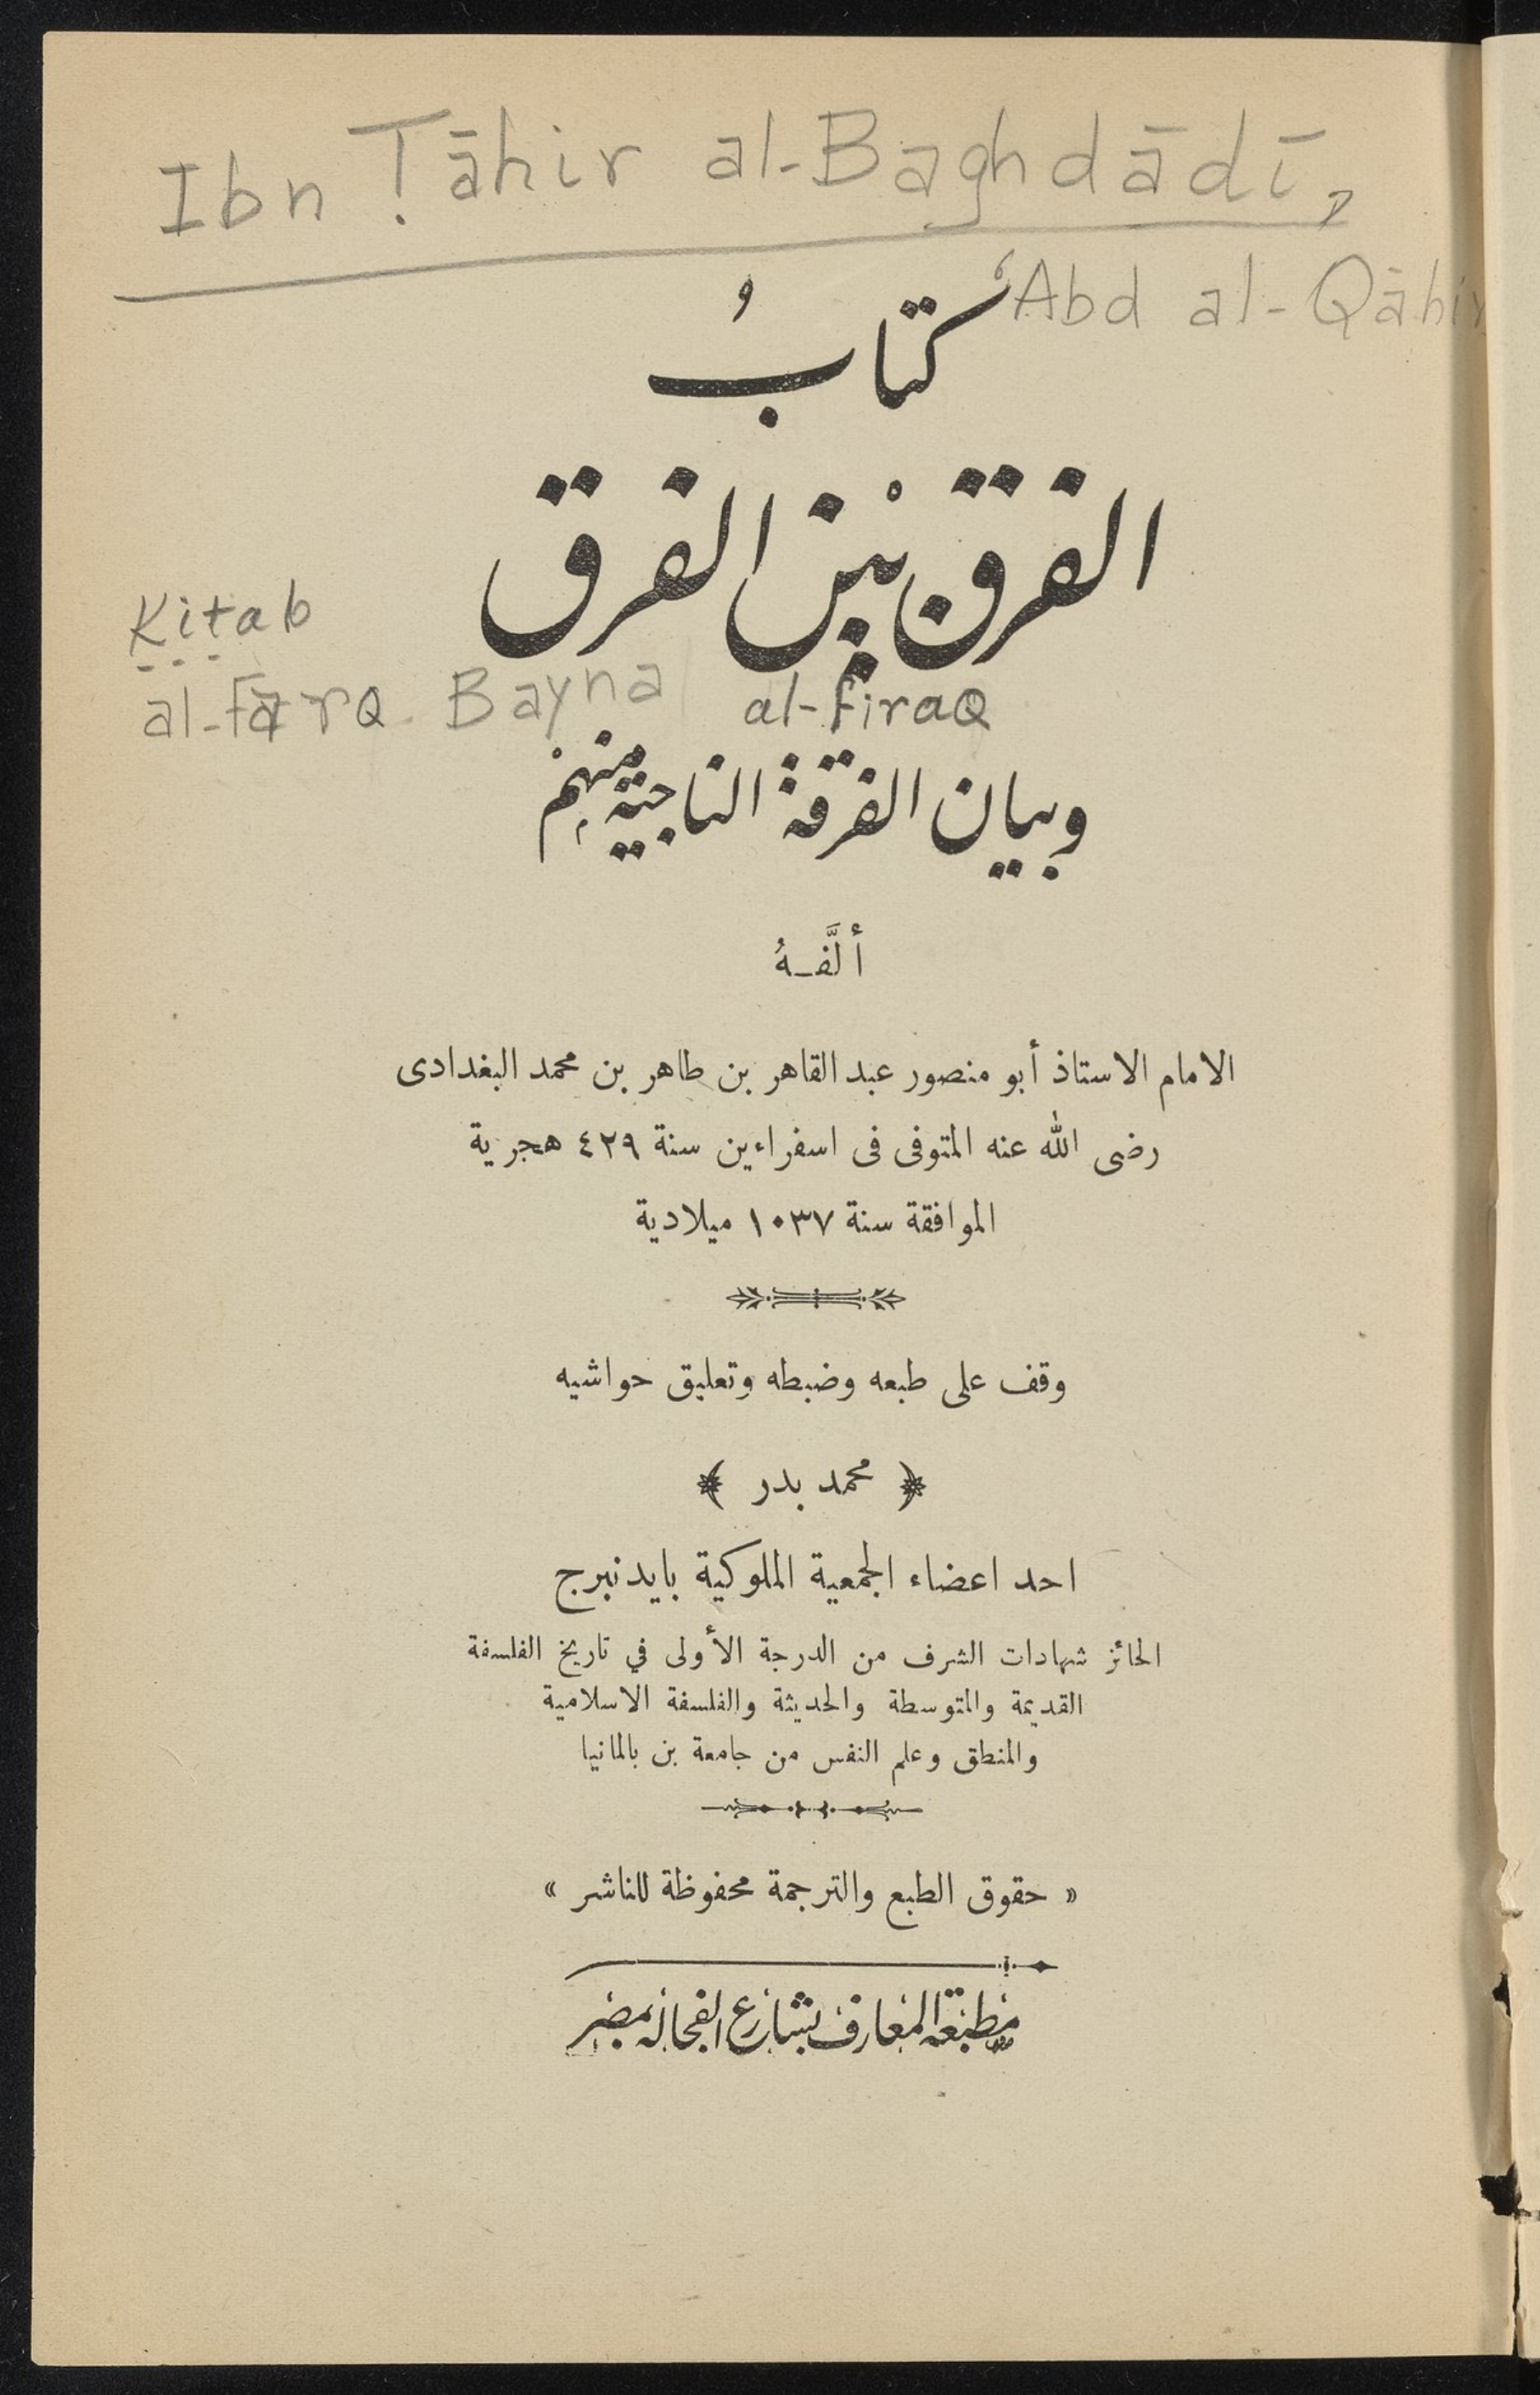 Ibn Ṭāhir al-Baghdādī,
ʿAbd al-Qāhir
كتابُ
الفرق بيْن الفرق
Kitab
al-Farq Bayna al-firaq
وبيان الفرقة الناجية منهم
ألَّفـهُ
الامام الاستاذ أبو منصور عبد القاهر بن طاهر بن محمد البغدادى
رضى الله عنه المتوفى فى اسفراءين سنة ٤٢٩ هجرية
الموافقة سنة ١٠٣٧ ميلادية
وقف على طبعه وضبطه وتعليق حواشيه
﴿ محمد بدر ﴾
احد اعضاء الجمعية الملوكية بايدنبرج
الحائز شهادات الشرف من الدرجة الأولى في تاريخ الفلسفة
القديمة والمتوسطة والحديثة والفلسفة الاسلامية
والمنطق وعلم النفس من جامعة بن بالمانيا
« حقوق الطبع والترجمة محفوظة للناشر »
مطبعة المعارف بشارع الفجاله بمصر